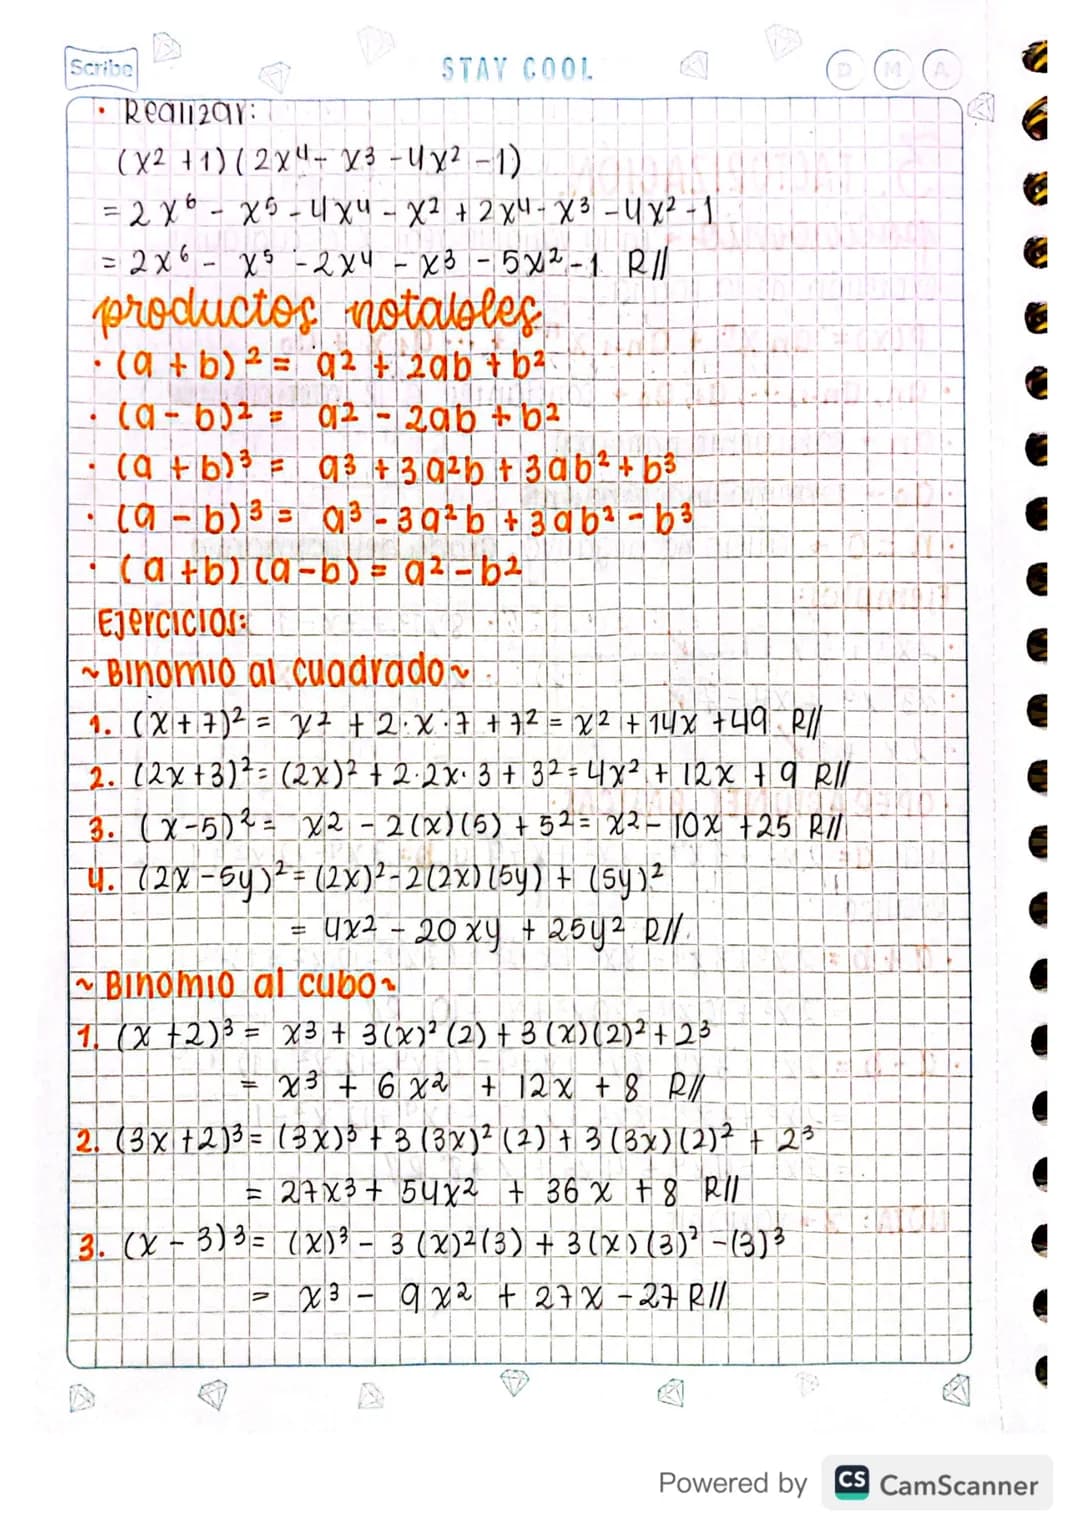 Scribe
STAY COOL
D M A
• Realizar:
(x² + 1) (2x⁴ - x³ - 4x² - 1)
= 2x⁶ - x⁵ - 4x⁴ - x² + 2x⁴ - x³ - 4x² - 1
= 2x⁶ - x⁵ - 2x⁴ - x³ - 5x² - 1 R//
productos notables
• (a + b)² = a² + 2ab + b²
• (a - b)² = a² - 2ab + b²
• (a + b)³ = a³ + 3a²b + 3ab² + b³
• (a - b)³ = a³ - 3a²b + 3ab² - b³
• (a + b) (a - b) = a² - b²
Ejercicios:
~ Binomio al cuadrado ~
1. (x + 7)² = x² + 2·x·7 + 7² = x² + 14x + 49 R//
2. (2x + 3)² = (2x)² + 2·2x·3 + 3² = 4x² + 12x + 9 R//
3. (x - 5)² = x² - 2(x)(5) + 5² = x² - 10x + 25 R//
4. (2x - 5y)² = (2x)² - 2(2x)(5y) + (5y)²
= 4x² - 20xy + 25y² R//
~ Binomio al cubo ~
1. (x + 2)³ = x³ + 3(x)²(2) + 3(x)(2)² + 2³
= x³ + 6x² + 12x + 8 R//
2. (3x + 2)³ = (3x)³ + 3(3x)²(2) + 3(3x)(2)² + 2³
= 27x³ + 54x² + 36x + 8 R//
3. (x - 3)³ = (x)³ - 3(x)²(3) + 3(x)(3)² - (3)³
= x³ - 9x² + 27x - 27 R//
Powered by CS CamScanner